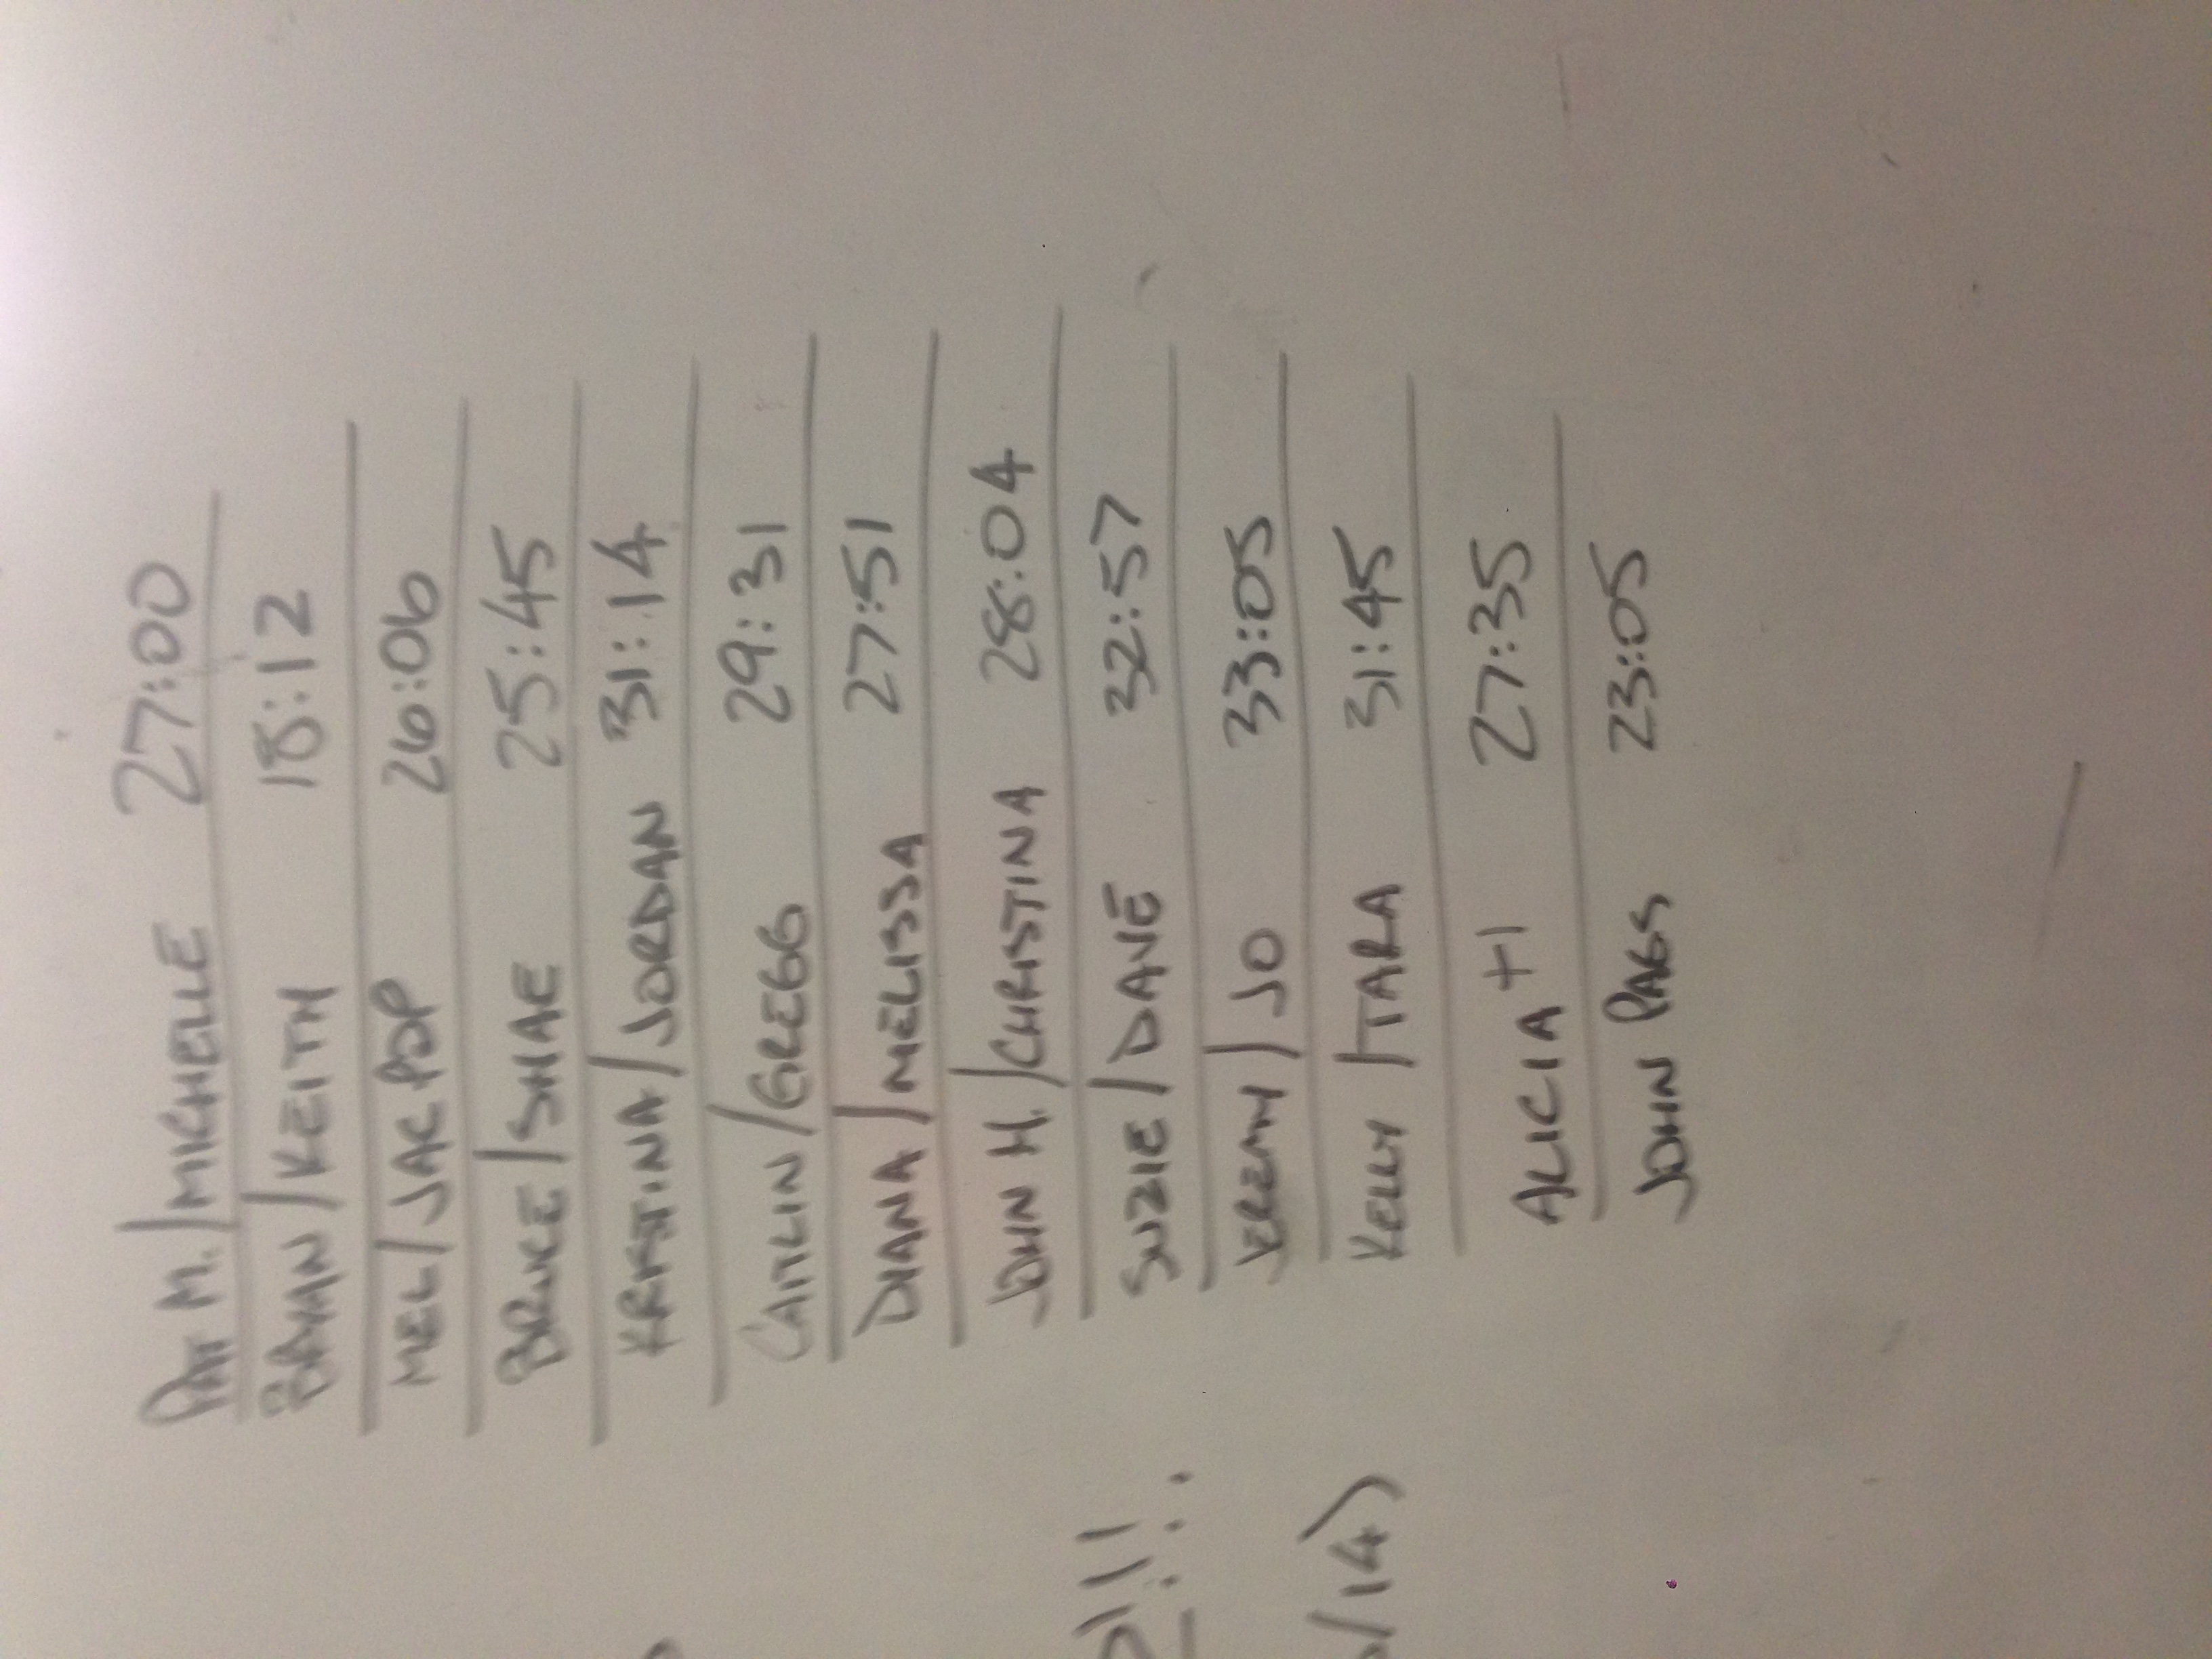 PAT M. / MICHELLE 27:00
BRYAN / KEITH 18:12
MEL / JAC POP 26:06
BRUCE / SHAE 25:45
KRISTINA / JORDAN 31:14
CAITLIN / GREGG 29:31
DIANA / MELISSA 27:51
JOHN H. / CHRISTINA 28:04
SUZIE / DAVE 32:57
JEREMY / JO 33:05
KELLY / TARA 31:45
ALICIA +1 27:35
JOHN PAGS 23:05
/14)